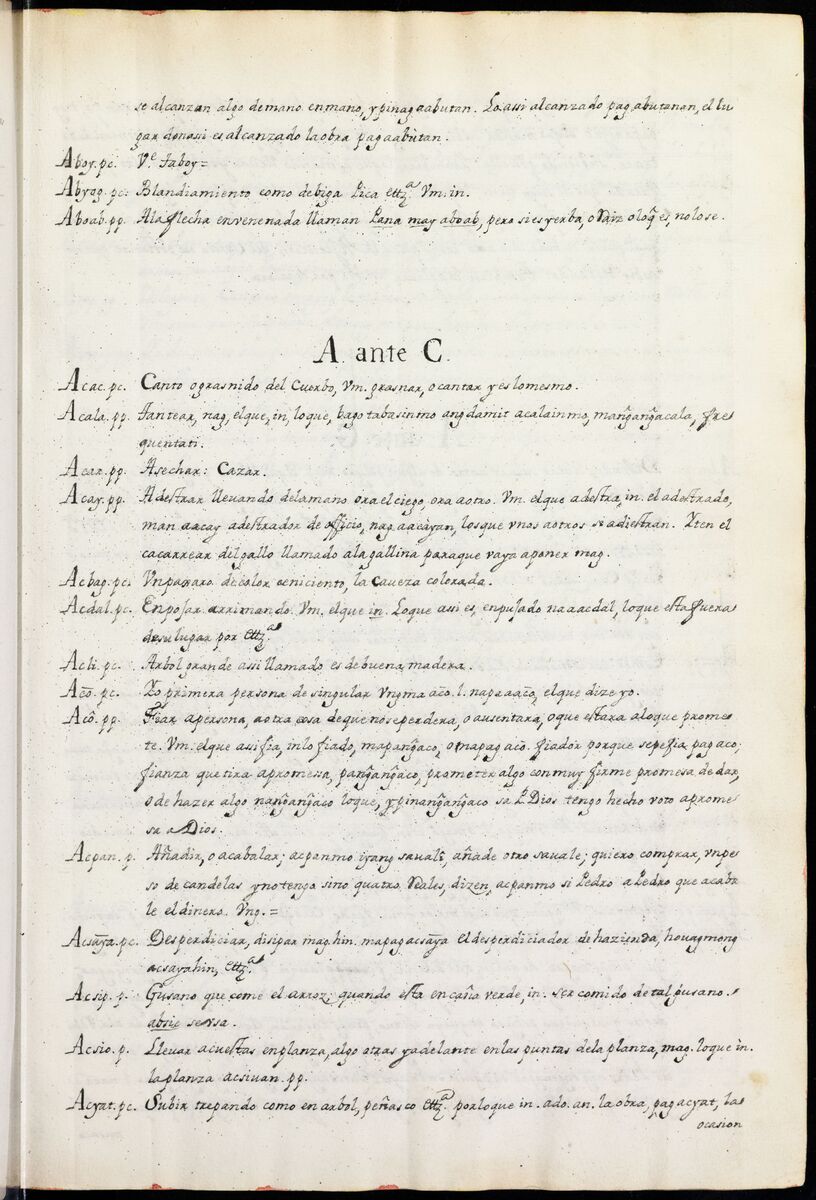 se alcanzan algo demano enmano, ypinagaabutan. Lo assi alcanzado pag abutanan, el lu
gar donassi es alcanzado la obra pagaabùtan.
Aboy. pc. Vᵉ taboy =
Abyog. pc. Blandiamiento como debiga Pica ettzᵃ. Vm. in.
Aboab. pp. Ala flecha envenenada llaman Pana may aboab, pero si es yerba, o Raiz o loq̃ es, nolose.
A. ante C.
Acac. pc. Canto ograsnido del Cuerbo, Vm. grasnar, o cantar y es lomesmo.
Acala. pp. tantear, nag, elque, in, loque, bago tabasinmo ang damit acalainmo, mang̃ang̃acala, fre
quentati.
Acar. pp. Asechar: Cazar.
Acay. pp. Adestrar llevando delamano ora el ciego, ora aotro. Vm. el que adestra, in. el adestrado,
man aacay adestrador de officio, nag aacayan, losque vnos aotros se adiestran. Yten el
cacarrear del gallo llamado ala gallina paraque vaya aponer mag.
Acbag. pc. Vn paxaro decolor ceniciento, la caveza colorada.
Acdal. pc. Enpujar arrimando. Vm. elque in. Loque assi es, enpujado naaacdal, loque esta fuera
desulugar por ettzᵃ.
Acli. pc. Arbol grande assi llamado es de buena madera.
Aco. pc. Yo primera persona de singular Vngma aco. l. napaaaco, el que dize yo.
Acô. pp. Fiar apersona, aotra cosa de que nose perdera, o ausentara, o que estara aloque prome
te. Vm. el que assi fia, inlo fiado, mapang̃aco, o mapag aco. fiador porque sepefia pag aco;
fianza quetira apromessa, pang̃ang̃aco, prometer algo conmuy firme promesa dedar,
o de hazer algo nang̃ang̃aco loque, ypinang̃ang̃aco sa P. Dios tengo hecho voto aprome
sa a Dios.
Acpan. p. Añadir, o acabalar; acpanmo iyang savali, añade otro savale; quiero comprar, vnpe
so de candelas yno tengo sino quatro Reales, dizen, acpanmo si Pedro a Pedro que acaba
le el dinero. Vng. =
Acsaya. pc. Desperdiciar, disipar mag. hin. mapagacsaya el desperdiciador de hazienda, houagmong
acsayahin, ettzᵃ.
Acsip. p. Gusano que come el arroz; quando esta en caña verde, in. ser comido de tal gusano.
absic se vsa.
Acsio. p. Llevar acuestas enplanza, algo atras yadelante enlas puntas dela planza, mag. loque in.
la planza acsiuan. pp.
Acyat. pc. Subir trepando como en arbol, peñasco ettzᵃ. porloque in. ado. an. la obra, pag acyat, la
ocasion